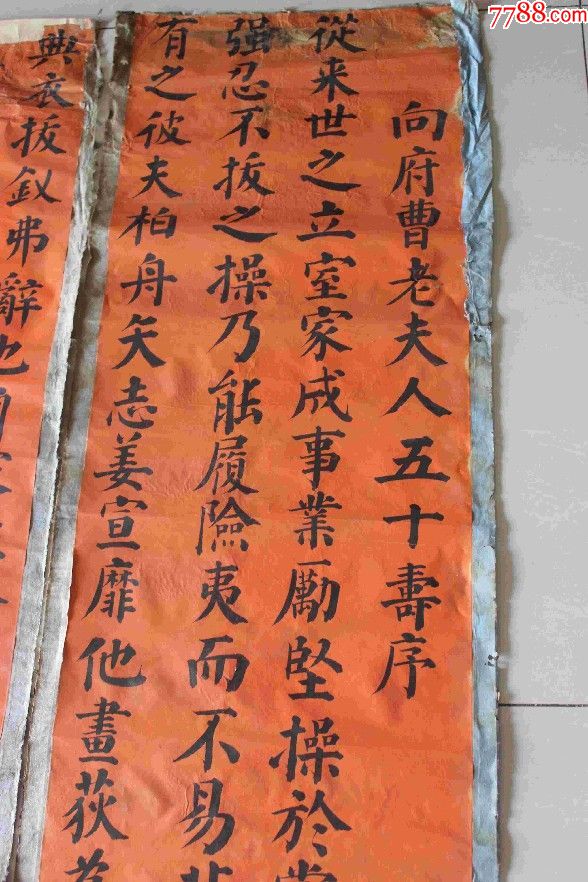 7788.com
向府曹老夫人五十壽序
從来世之立室家成事業勵堅操於
强忍不拔之操乃能履險夷而不易
有之彼夫柏舟矢志姜宣靡他畫荻
典衣拔釵弗辭也